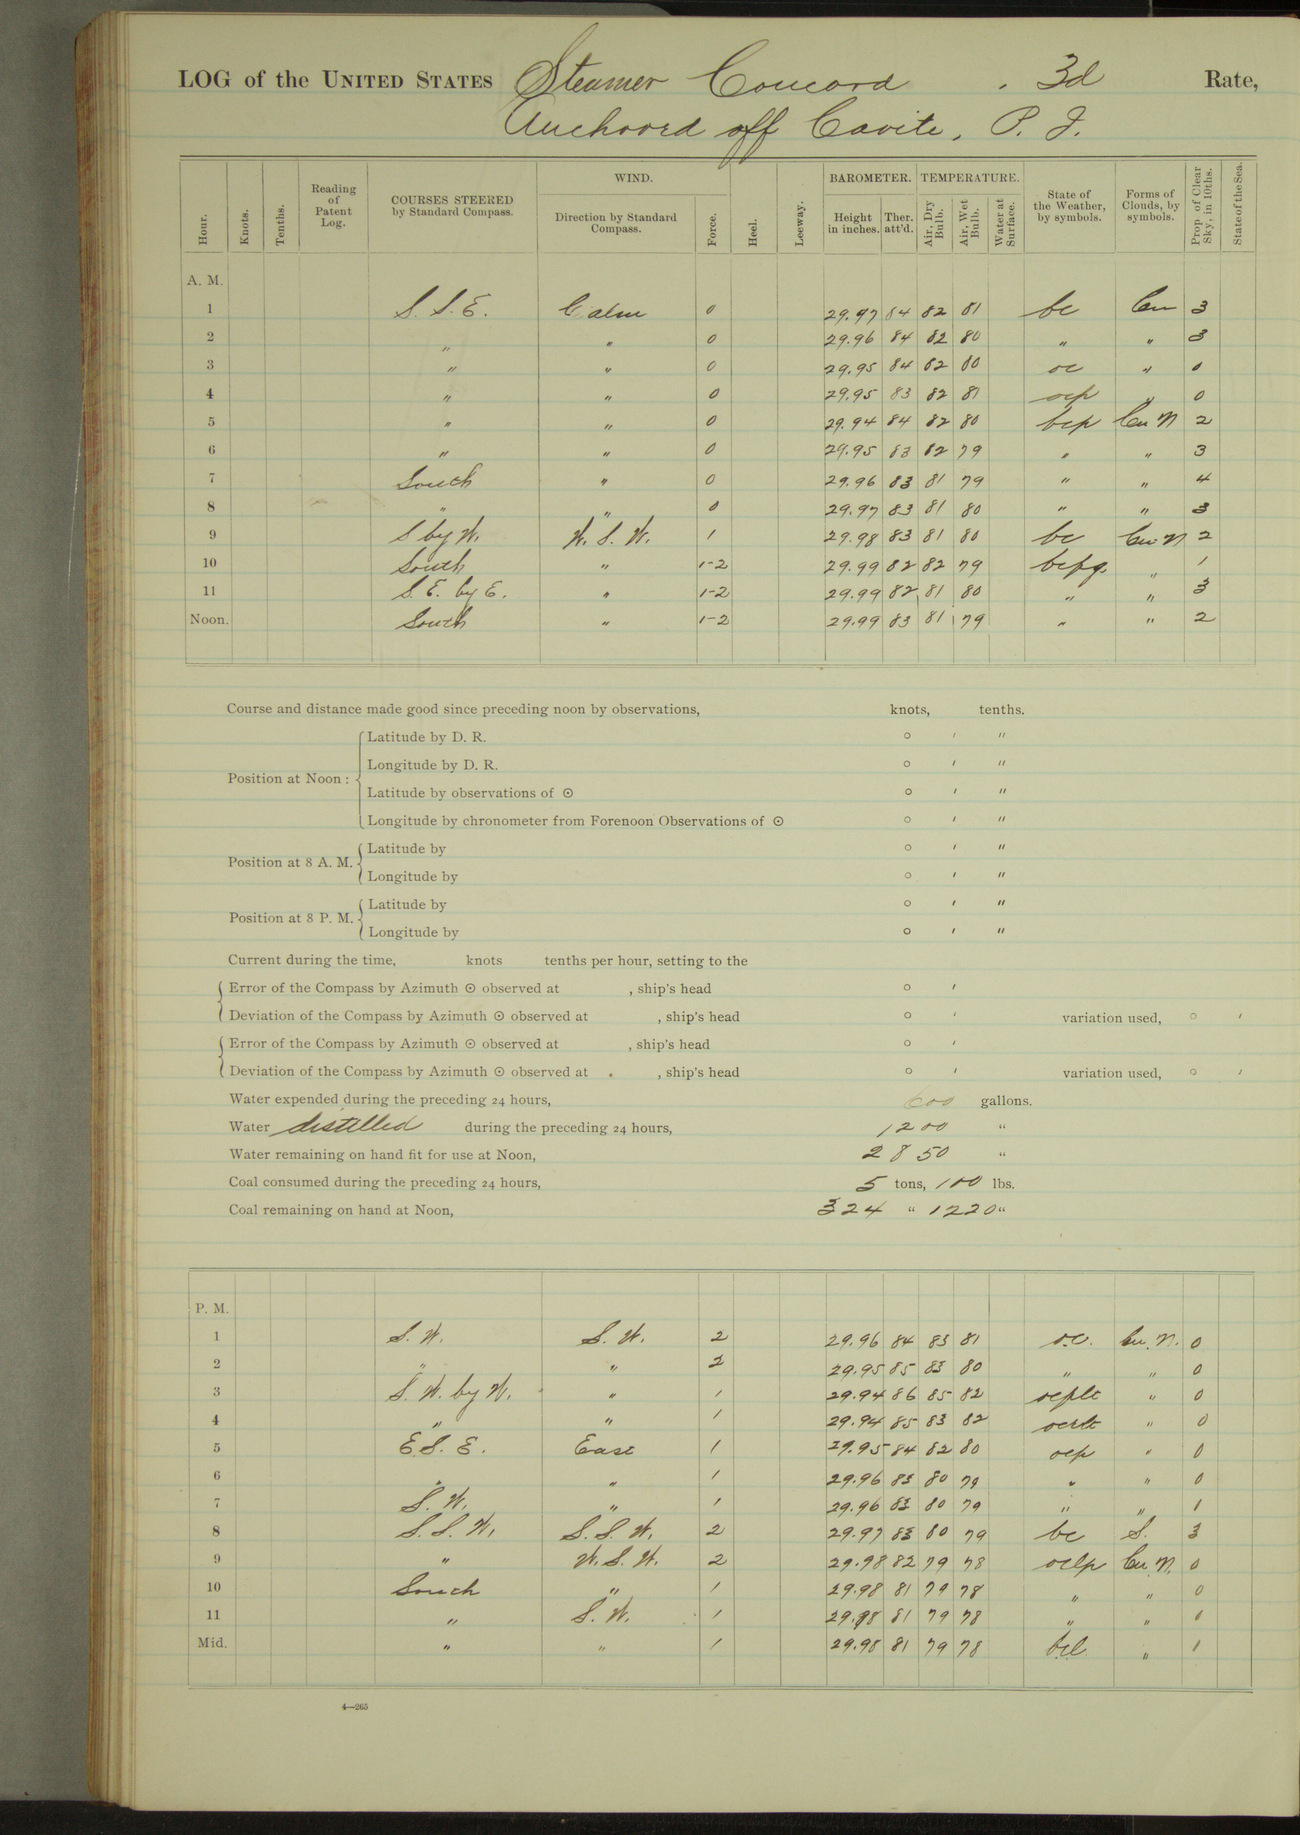 LOG of the UNITED STATES Steamer Concord, 3d Rate,
Anchored off Cavite, P. I.
Hour. Knots. Tenths. Reading of Patent Log. COURSES STEERED by Standard Compass. WIND. Direction by Standard Compass. Force. Heel. Leeway. BAROMETER. Height in inches. Ther. att'd. TEMPERATURE. Air, Dry Bulb. Air, Wet Bulb. Water at Surface. State of the Weather, by symbols. Forms of Clouds, by symbols. Prop. of Clear Sky, in 10ths. State of the Sea.
A. M.
1 S. S. E. Calm 0 29.97 84 82 81 bc Cu 3
2 " " 0 29.96 84 82 80 " " 3
3 " " 0 29.95 84 82 80 oc " 0
4 " " 0 29.95 83 82 81 ocp " 0
5 " " 0 29.94 84 82 80 bcp Cu N 2
6 " " 0 29.95 83 82 79 " " 3
7 South " 0 29.96 83 81 79 " " 4
8 " " 0 29.97 83 81 80 " " 3
9 S by W. W. S. W. 1 29.98 83 81 80 bc Cu N 2
10 South " 1-2 29.99 82 82 79 bcpq " 1
11 S. E. by E. " 1-2 29.99 82 81 80 " " 3
Noon. South " 1-2 29.99 83 81 79 " " 2
Course and distance made good since preceding noon by observations, knots, tenths.
Position at Noon: Latitude by D. R. ° ′ ″
Longitude by D. R. ° ′ ″
Latitude by observations of ☉ ° ′ ″
Longitude by chronometer from Forenoon Observations of ☉ ° ′ ″
Position at 8 A. M. Latitude by ° ′ ″
Longitude by ° ′ ″
Position at 8 P. M. Latitude by ° ′ ″
Longitude by ° ′ ″
Current during the time, knots tenths per hour, setting to the
Error of the Compass by Azimuth ☉ observed at , ship's head ° ′
Deviation of the Compass by Azimuth ☉ observed at , ship's head ° ′ variation used, ° ′
Error of the Compass by Azimuth ☉ observed at , ship's head ° ′
Deviation of the Compass by Azimuth ☉ observed at , ship's head ° ′ variation used, ° ′
Water expended during the preceding 24 hours, 600 gallons.
Water distilled during the preceding 24 hours, 1200 "
Water remaining on hand fit for use at Noon, 2850 "
Coal consumed during the preceding 24 hours, 5 tons, 100 lbs.
Coal remaining on hand at Noon, 324 " 1220 "
P. M.
1 S. W. S. W. 2 29.96 84 83 81 o.c. Cu. N. 0
2 " " 2 29.95 85 83 80 " " 0
3 S. W. by W. " 1 29.94 86 85 82 ocplt " 0
4 " " 1 29.94 85 83 82 " 0
5 E. S. E. East 1 29.95 84 82 80 ocp " 0
6 " " 1 29.96 83 80 79 " " 0
7 S. W. " 1 29.96 83 80 79 " " 1
8 S. S. W. S. S. W. 2 29.97 83 80 79 bc S. 3
9 " W. S. W. 2 29.98 82 79 78 oclp Cu. N. 0
10 South " 1 29.98 81 79 78 " " 0
11 " S. W. 1 29.98 81 79 78 " " 1
Mid. " " 1 29.98 81 79 78 bcl " 1
4—265